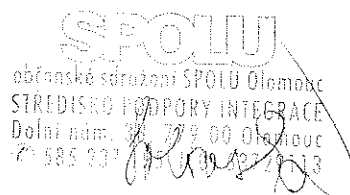 SPOLU
občanské sdružení SPOLU Olomouc
STŘEDISKO PODPORY INTEGRACE
Dolní nám. 779 00 Olomouc
585 237